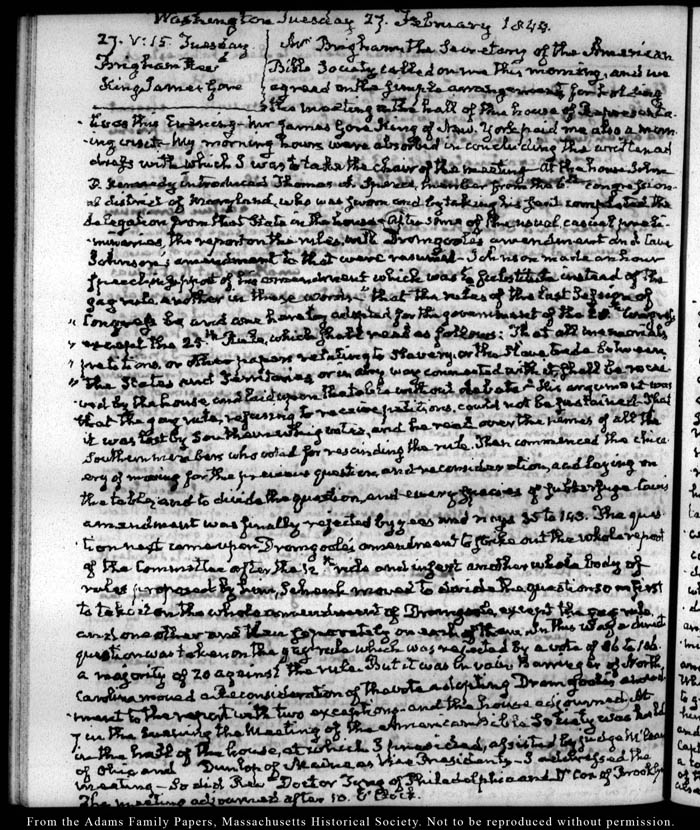 Washington Tuesday 27. February 1844.
27. V:15. Tuesday
Brigham Rev.d
King James Gore
Mr Brigham, the Secretary of the American
Bible Society called on me this morning, and we
agreed on the simple arrangements for holding
this meeting in the hall of the house of Representa-
tives this Evening. Mr James Gore King of New York paid me also a morn-
ing visit. My morning hours were absorbed in concluding the written ad
dress with which I was to take the chair of the meeting. At the house John
P. Kennedy introduced Thomas A. Spence, member from the 6th congression-
al district of Maryland, who was sworn and by taking his seat completed the
delegation from that State in the house. After some of the usual casual preli-
minaries, the report on the rules, with Dromgoole's amendment and Cave
Johnson's amendment to that were resumed. Johnson made an hour
speech in support of his amendment which was to substitute instead of the
gag rule another in these words "that the rules of the last Session of
" Congress be and are hereby adopted for the government of the 28th Congress
" except the 25th Rule, which shall read as follows: That all memorials
" petitions, or other papers relating to Slavery, or the Slave trade between
" the States and Territories or in any way connected with it, shall be recei
ved by the house and laid upon the table without debate" His argument was
that the gag rule, refusing to receive petitions, could not be sustained. That
it was lost by Southern whig votes, and he read over the names of all the
Southern members who voted for rescinding the rule. Then commenced the chica
nery of moving for the previous question, and reconsideration, and laying on
the table, and to divide the question, and every species of subterfuge. Cave's
amendment was finally rejected by yeas and nays 35 to 143. The ques-
tion next came upon Dromgoole's amendment to strike out the whole report
of the Committee after the 12th rule and insert another whole body of
rules proposed by him, Schenk moved to divide the question so as first
to take it on the whole amendment of Dromgoole, except the gag rule,
and one other and then separately on each of them. In this way a direct
question was taken on the gag rule which was rejected by a vote of 86 to 106.
a majority of 20 against the rule. But it was in vain. Barringer of North
Carolina moved a Reconsideration of the vote adopting Dromgoole's amend-
ment to the report with two exceptions and the house adjourned. At
7 in the evening the Meeting of the American Bible Society was held
in the hall of the house, at which I presided, assisted by Judge McLean
of Ohio and Dunlop of Maine as Vice Presidents. I addressed the
meeting. So did Rev.d Doctor Tyng of Philadelphia and Dr Cox of Brooklyn
The meeting adjourned after 10. O'Clock.
From the Adams Family Papers, Massachusetts Historical Society. Not to be reproduced without permission.